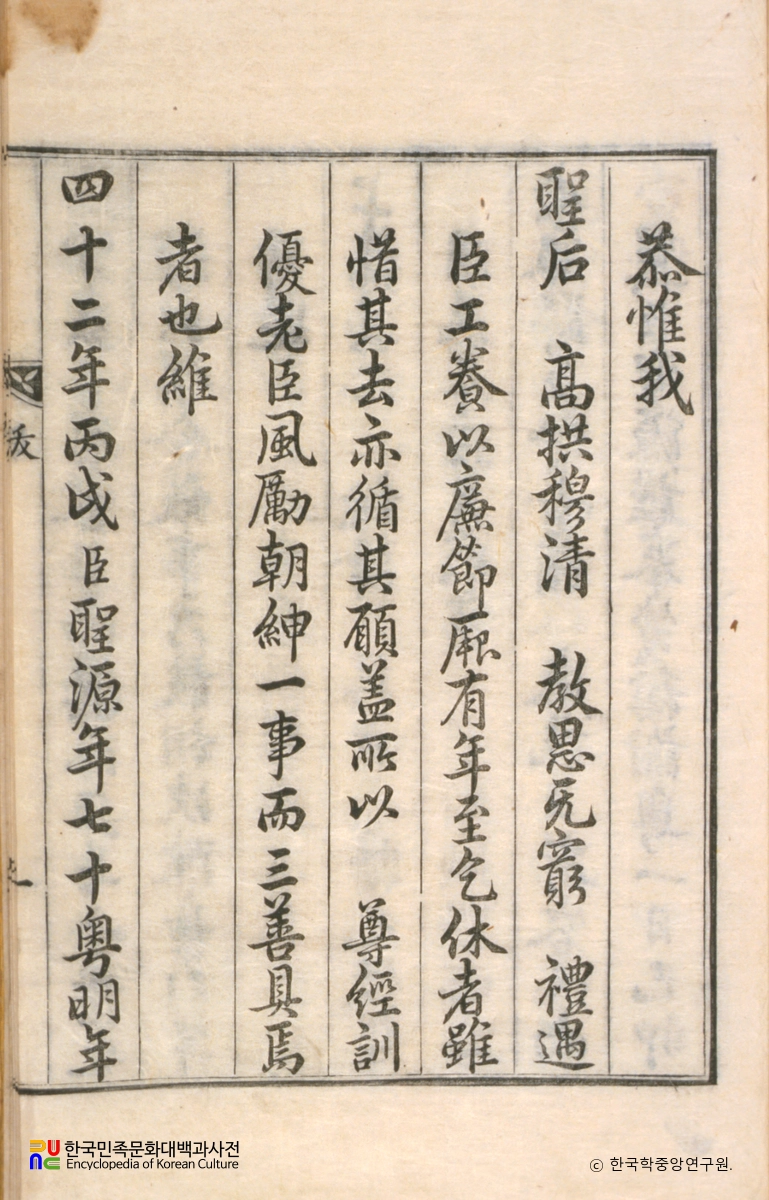 恭惟我
聖后 高拱穆清 敎思旡窮 禮遇
臣工養以廉節厥有年至乞休者雖
惜其去亦循其願盖所以 尊經訓
優老臣風厲朝紳一事而三善具焉
者也維
四十二年丙戌臣聖源年七十粤明年
한국민족문화대백과사전
Encyclopedia of Korean Culture
© 한국학중앙연구원.